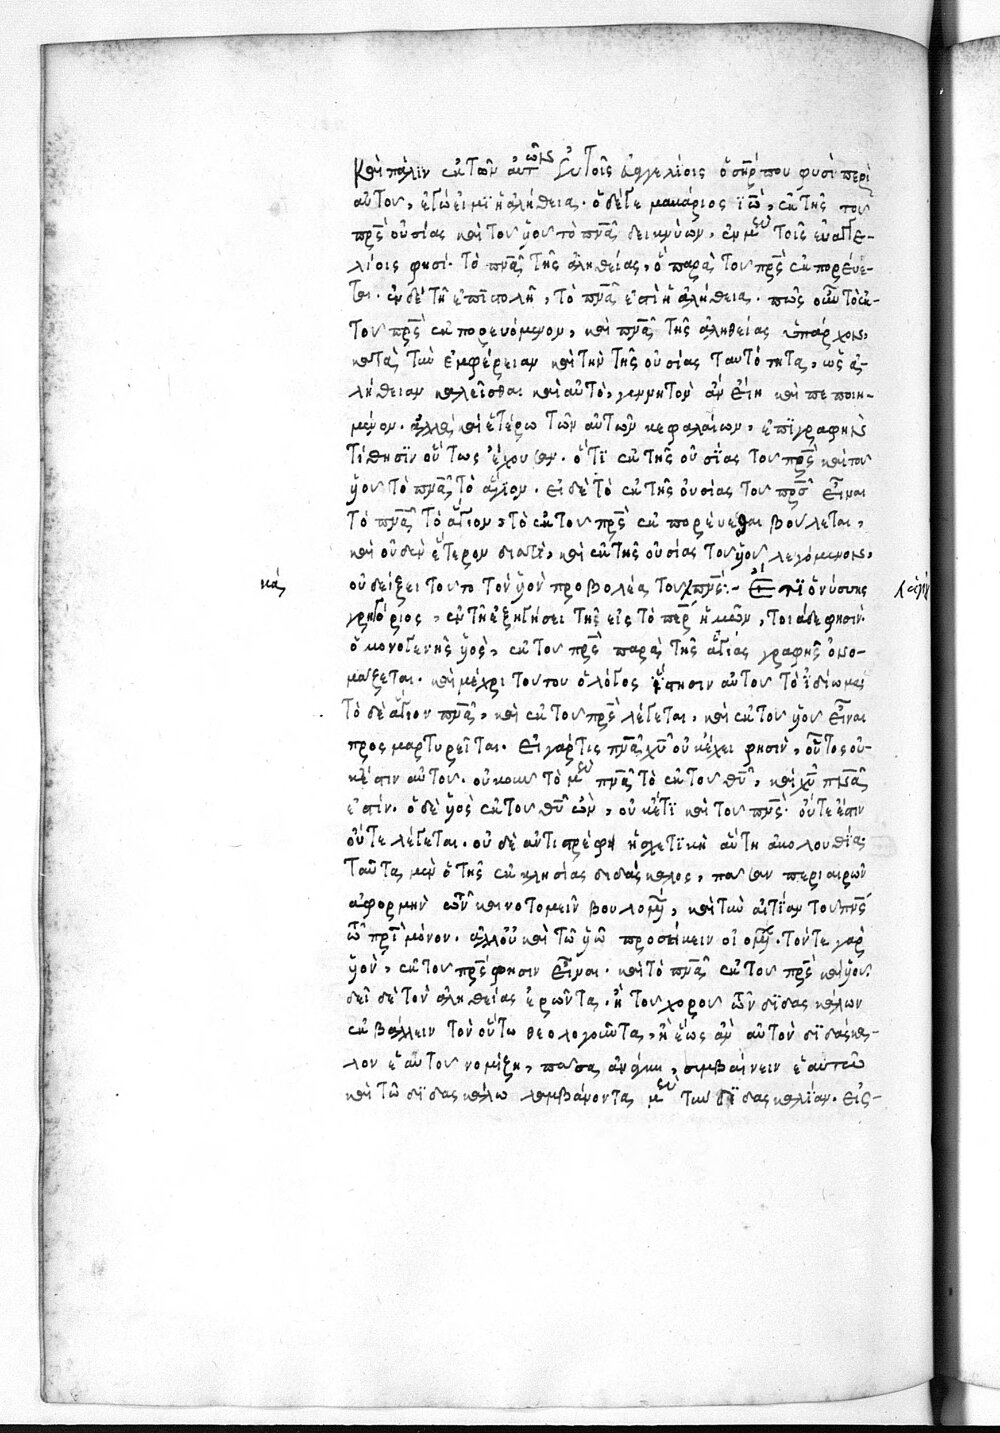 Καὶ πάλιν ἐκ τῶν αὐτῶν· ἐν τοῖς εὐαγγελίοις ὁ σηρ που φυσὶ περὶ
αὐτοῦ, ἐγώ εἰμι ἡ ἀλήθεια. ὁ δέ γε μακάριος ϊω, ἐκ τῆς τοῦ
πρς οὐσίας καὶ τοῦ υἱοῦ τὸ πνα δεικνύων, ἐν μὲν τοῖς εὐαγγε-
λίοις φησί. τὸ πνα τῆς ἀληθείας, ὃ παρὰ τοῦ πρς ἐκπορεύε-
ται. ἐν δὲ τῆ ἐπϊστολῆ, τὸ πνα ἐστὶ ἡ ἀλήθεια. πῶς οὖν τὸ ἐκ
τοῦ πρς ἐκπορευόμενον, καὶ πνα τῆς ἀληθείας ὑπάρχον,
κατὰ τὴν ἐμφέρειαν καὶ τὴν τῆς οὐσίας ταυτότητα, ὡς ἀ-
λήθειαν καλεῖσθαι καὶ αὐτὸ, γεννητὸν ἂν εἴη καὶ πεποιη-
μένον. ἀλλὰ καὶ ἑτέρω τῶν αὐτῶν κεφαλαίων, ἐπϊγραφὴν
τίθησϊν οὕτως ἔχουσαν. ὅτϊ ἐκ τῆς οὐσίας τοῦ πρς καὶ τοῦ
υἱοῦ τὸ πνα τὸ ἅγϊον. εἰ δὲ τὸ ἐκ τῆς οὐσίας τοῦ πρς εἶναι
τὸ πνα τὸ ἅγιον, τὸ ἐκ τοῦ πρς ἐκπορεύεσθαι βούλεται,
καὶ οὐδὲν ἕτερον διατὶ, καὶ ἐκ τῆς οὐσίας τοῦ υἱοῦ λεγόμενον,
κά οὐ δείξει τοῦτο τὸν υἱὸν προβολέα τοῦ πνς: Ἔτϊ ὁ νύσσης
γρηγόριος, ἐν τῆ ἐξηγήσει τῆς εἰς τὸ περ ἡμῶν, τοιάδε φησίν.
ὁ μονογενὴς υἱὸς, ἐκ τοῦ πρς παρὰ τῆς ἁγίας γραφῆς ὀνο-
μάζεται. καὶ μέχρι τούτου ὁ λόγος ἵστησιν αὐτοῦ τὸ ϊδίωμα·
τὸ δὲ ἅγιον πνα, καὶ ἐκ τοῦ πρς λέγεται, καὶ ἐκ τοῦ υἱοῦ εἶναι
προσμαρτυρεῖται. εἰ γάρ τις πνα χυ οὐκ ἔχει φησὶν, οὗτος οὐ-
κ ἔστιν αὐτοῦ. οὐκοῦν τὸ μὲν πνα τὸ ἐκ τοῦ θυ, καὶ χυ πνα
ἐστίν. ὁ δὲ υἱὸς ἐκ τοῦ θυ ὢν, οὐκέτϊ καὶ τοῦ πνς οὔτε ἐστιν
οὔτε λέγεται. οὐδὲ ἀντιστρέφει ἡ σχετϊκὴ αὕτη ἀκολουθία·
ταῦτα μὲν ὁ τῆς ἐκκλησίας διδάσκαλος, πᾶσαν περιαιρῶν
ἀφορμὴν τῶν καινοτομεῖν βουλομ, καὶ τὴν αἰτίαν τοῦ πνς
τῶ πρι μόνον. ἀλλ' οὐ καὶ τῶ υἱῶ προσήκειν οἰομ. τόν τε γὰρ
υἱὸν, ἐκ τοῦ πρς φησιν εἶναι. καὶ τὸ πνα ἐκ τοῦ πρς καὶ υἱοῦ.
δεῖ δὲ τὸν ἀληθείας ἐρῶντα. ἢ τοῦ χοροῦ τῶν δϊδασκάλων
ἐκβάλλειν τὸν οὕτω θεολογοῦντα, ἢ ἕως ἂν αὐτὸν δϊδάσκα-
λον ἑαυτοῦ νομίζη, πᾶσα ἀνάγκη, συμβαίνειν ἑαυτῶ
καὶ τῶ δϊδασκάλω λαμβάνοντα μὲν τὴν δϊδασκαλίαν. εἰς-